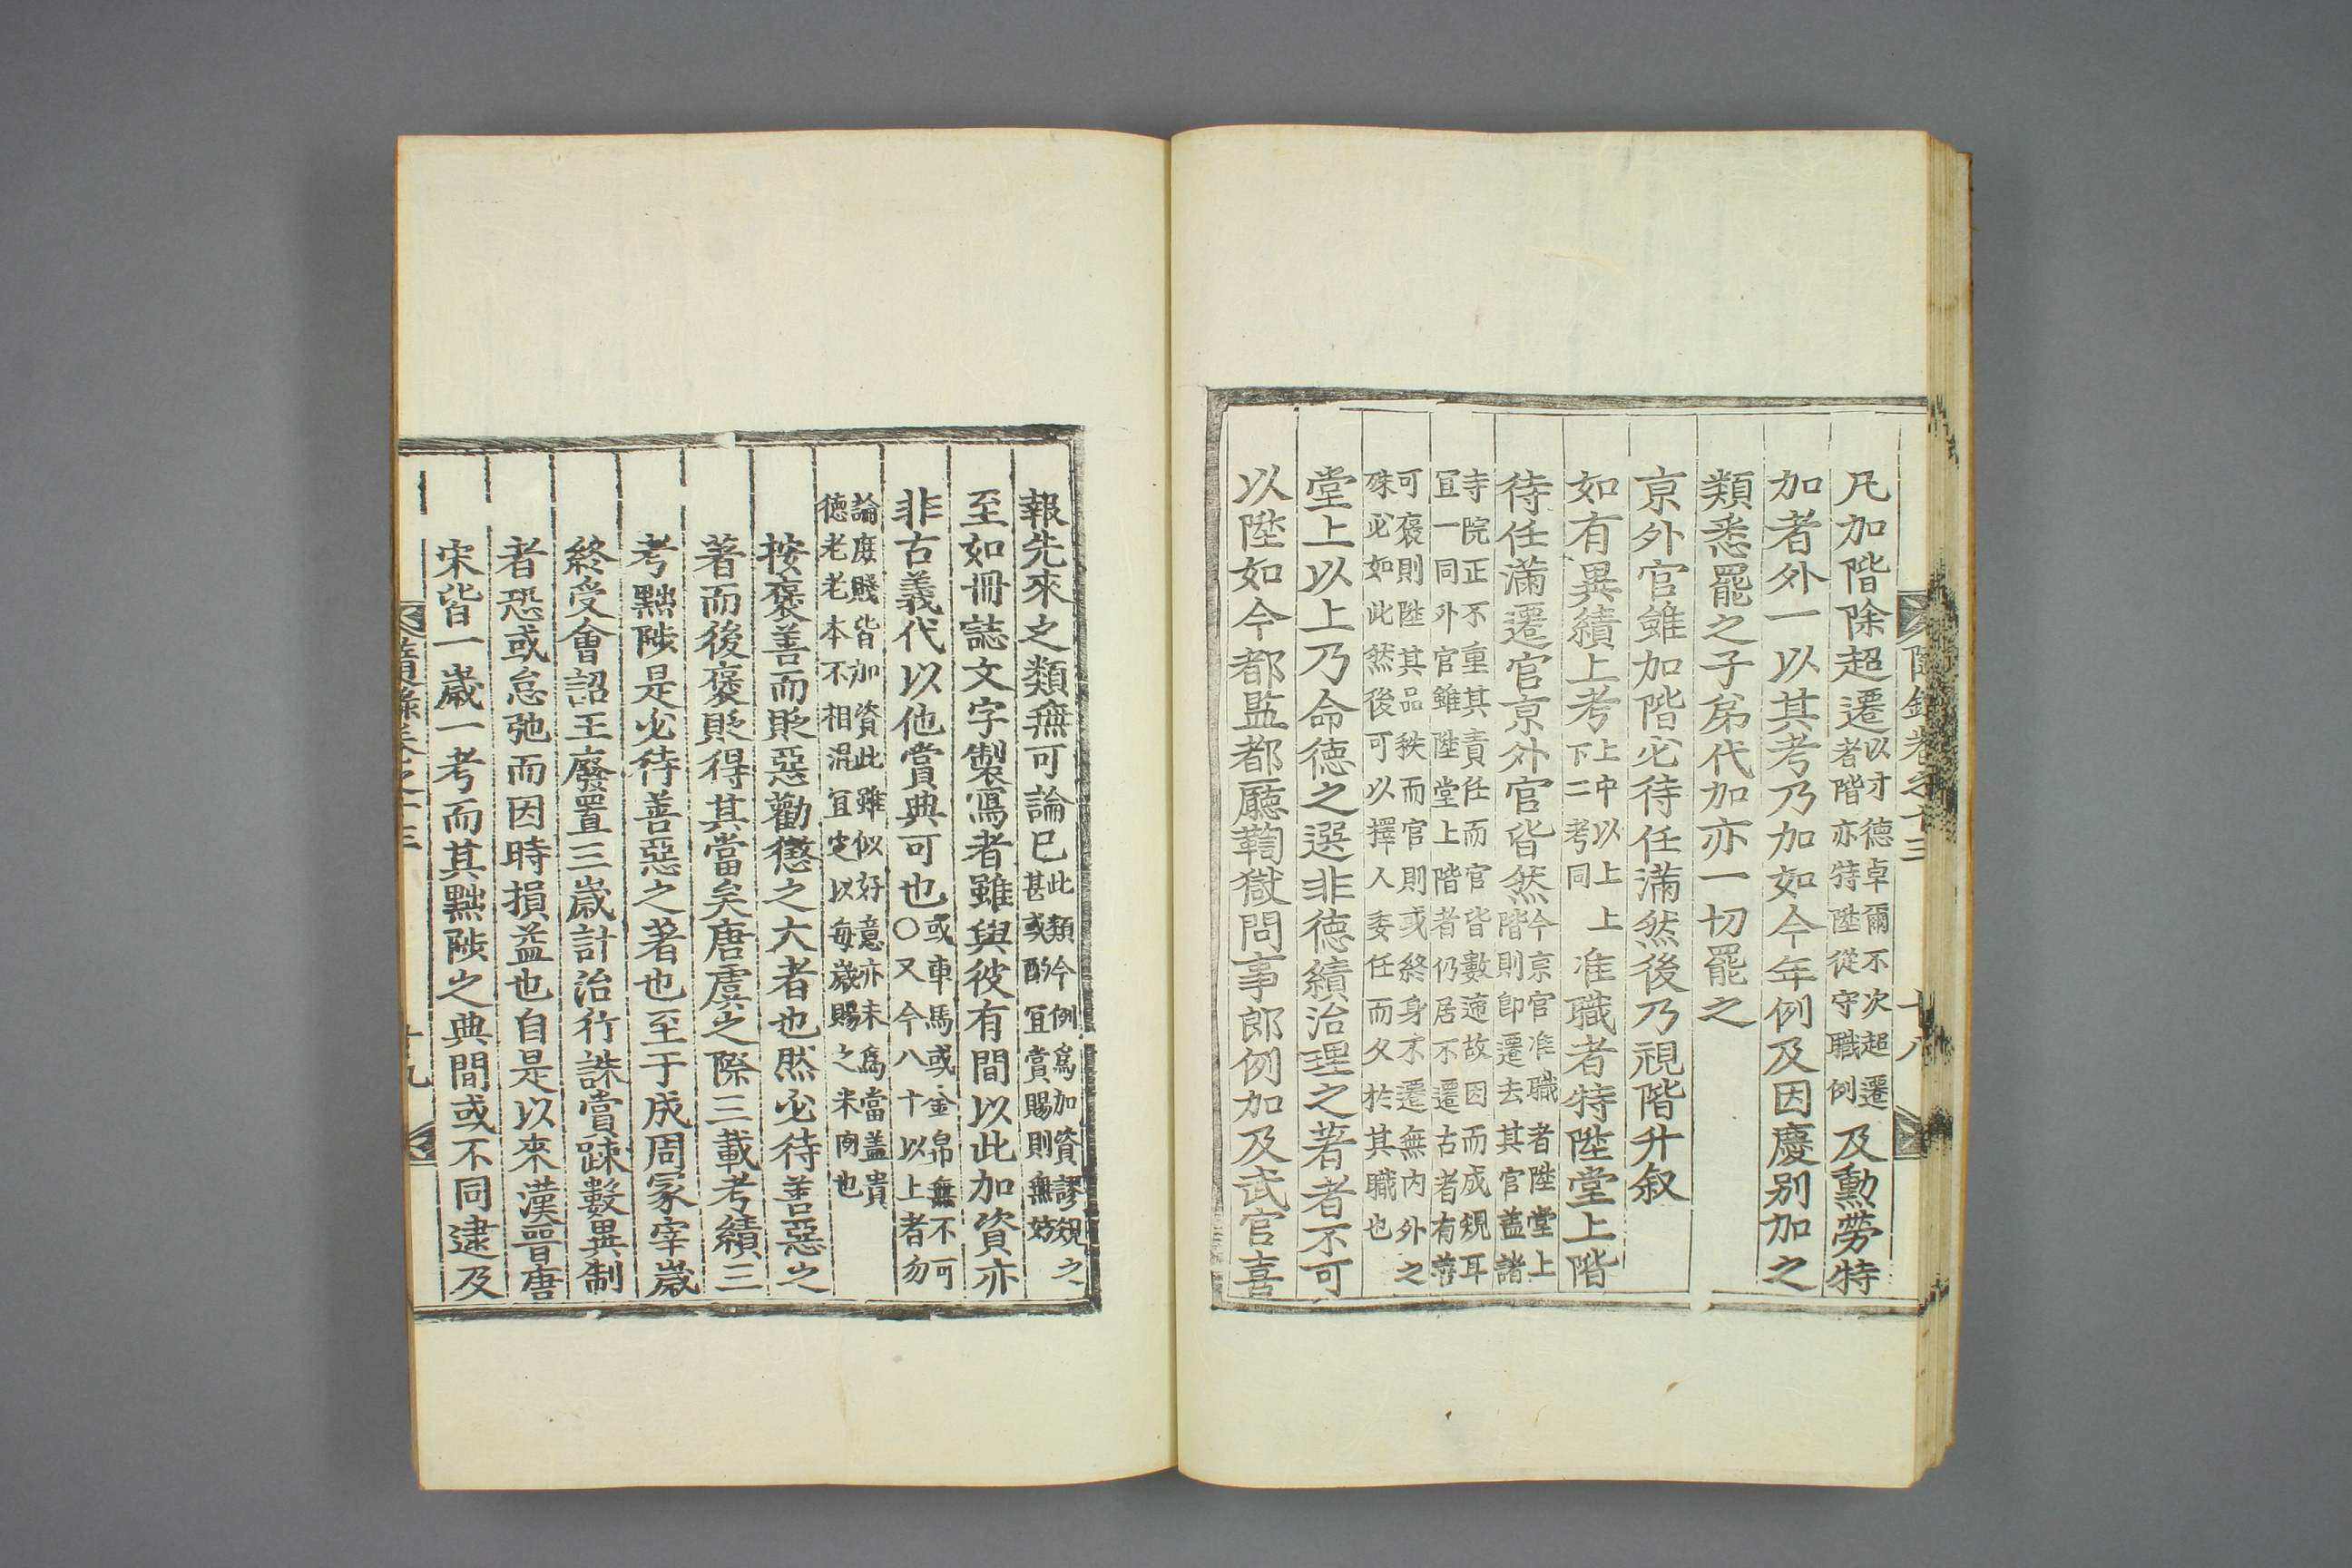 隨錄卷之十三　十八
凡加階除超遷以才德卓爾不次超遷
者階亦特陞從守職例及勳勞特
加者外一以其考乃加如今年例及因慶別加之
類悉罷之子弟代加亦一切罷之
京外官雖加階必待任滿然後乃視階升叙
如有異績上考上中以上上
下二考同准職者特陞堂上階
待任滿遷官京外官皆然今京官准職者陞堂上
階則即遷去其官盖諸
寺院正不重其責任而官皆數逓故因而成規耳
宜一同外官雖陞堂上階者仍居不遷古者有善
可褒則陞其品秩而官則或終身不遷無內外之
殊必如此然後可以擇人委任而久於其職也
堂上以上乃命德之選非德績治理之著者不可
以陞如今都監都廳鞫獄問事郎例加及武官喜
報先來之類無可論已此類今例爲加資謬規之
甚或酌宜賞賜則無妨
至如冊誌文字製寫者雖與彼有間以此加資亦
非古義代以他賞典可也或車馬或金帛無不可
○又今八十以上者勿
論庶賤皆加資此雖似好意亦未爲當盖貴
德老老本不相混宜定以每歲賜之米肉也
按褒善而貶惡勸懲之大者也然必待善惡之
著而後褒貶得其當矣唐虞之際三載考績三
考黜陟是必待善惡之著也至于成周冢宰歲
終受會詔王廢置三歲計治行誅賞踈數異制
者恐或怠弛而因時損益也自是以來漢晉唐
宋皆一歲一考而其黜陟之典間或不同逮及
隨錄卷之十三　十九